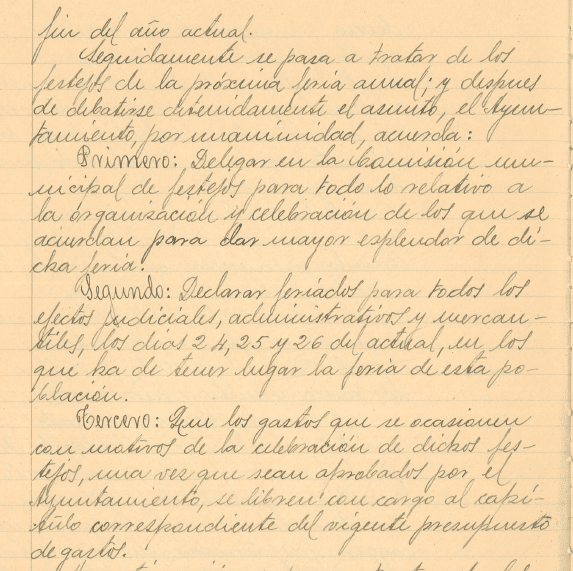 fin del año actual.
Seguidamente se pasa a tratar de los
festejos de la próxima feria anual; y despues
de debatirse detenidamente el asunto, el Ayun-
tamiento, por unanimidad, acuerda:
Primero: Delegar en la Comisión mu-
nicipal de festejos para todo lo relativo a
la organización y celebración de los que se
acuerdan para dar mayor esplendor de di-
cha feria.
Segundo: Declarar feriados para todos los
efectos judiciales, administrativos y mercan-
tiles, los dias 24, 25 y 26 del actual, en los
que ha de tener lugar la feria de esta po-
blación.
Tercero: Que los gastos que se ocasionen
con motivos de la celebración de dichos fes-
tejos, una vez que sean aprobados por el
Ayuntamiento, se libren con cargo al capí-
tulo correspondiente del vigente presupuesto
de gastos.